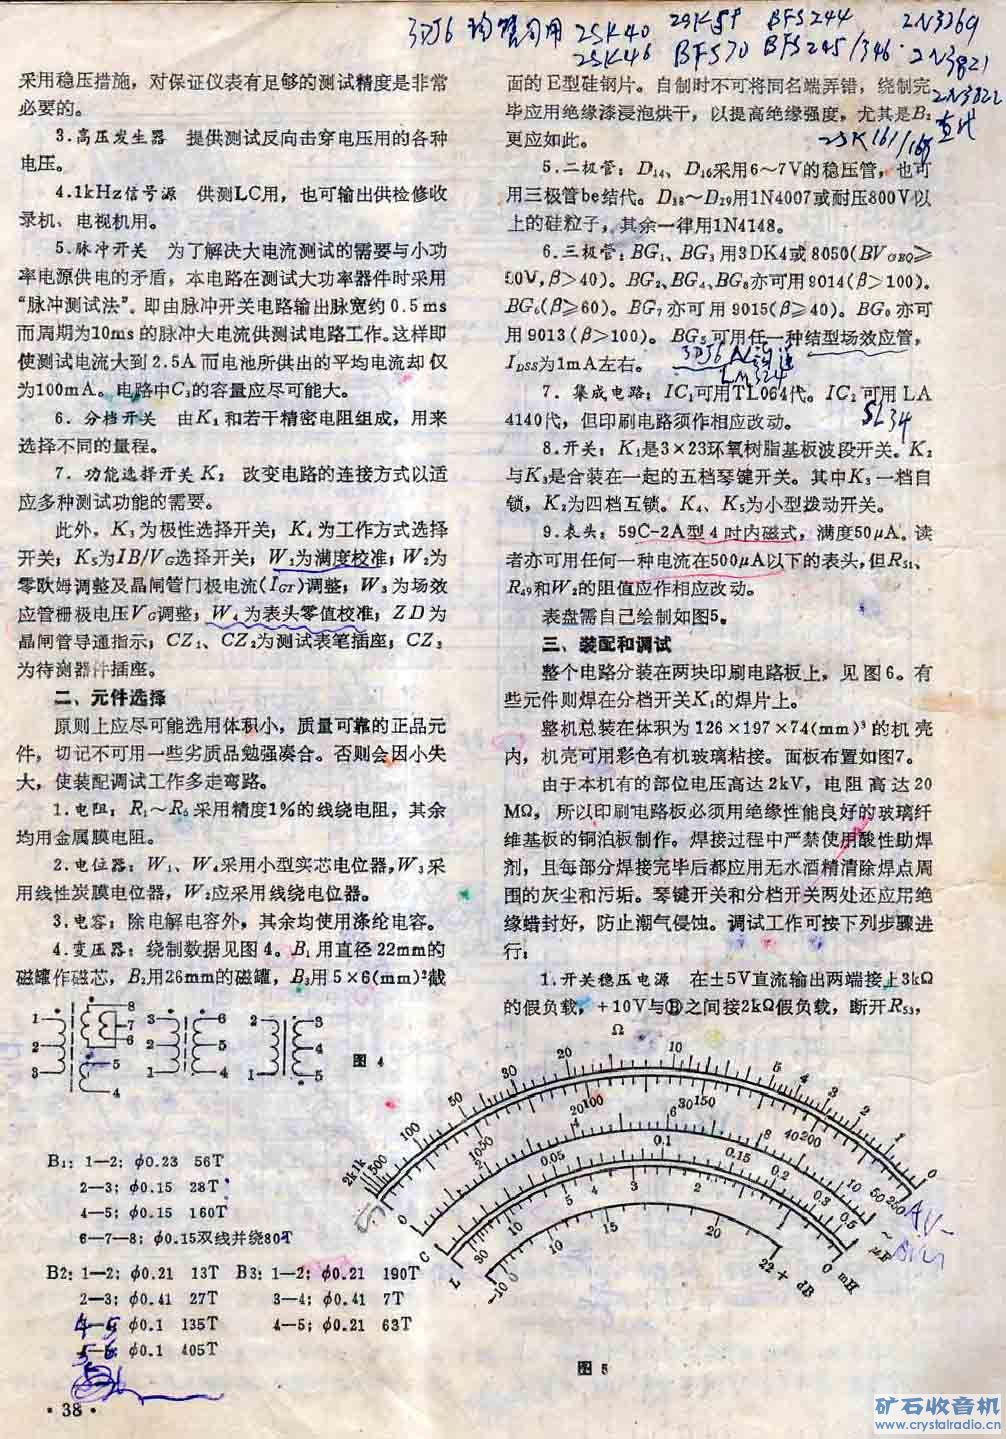 3DJ6 均可用 2SK40 2SK59 BFS244 2N3369
2SK46 BFS70 BFS245/346 2N3821
2N3822
查代
2SK161/168
采用稳压措施，对保证仪表有足够的测试精度是非常
必要的。
3.高压发生器　提供测试反向击穿电压用的各种
电压。
4.1kHz信号源　供测LC用，也可输出供检修收
录机、电视机用。
5.脉冲开关　为了解决大电流测试的需要与小功
率电源供电的矛盾，本电路在测试大功率器件时采用
“脉冲测试法”。即由脉冲开关电路输出脉宽约0.5ms
而周期为10ms的脉冲大电流供测试电路工作。这样即
使测试电流大到2.5A而电池所供出的平均电流却仅
为100mA。电路中C₃的容量应尽可能大。
6.分档开关　由K₁和若干精密电阻组成，用来
选择不同的量程。
7.功能选择开关K₂　改变电路的连接方式以适
应多种测试功能的需要。
此外，K₃为极性选择开关；K₄为工作方式选择
开关；K₅为IB/VG选择开关；W₁为满度校准；W₂为
零欧姆调整及晶闸管门极电流(IGT)调整；W₃为场效
应管栅极电压VG调整；W₄为表头零值校准；ZD为
晶闸管导通指示；CZ₁、CZ₂为测试表笔插座；CZ₃
为待测器件插座。
二、元件选择
原则上应尽可能选用体积小，质量可靠的正品元
件，切记不可用一些劣质品勉强凑合。否则会因小失
大，使装配调试工作多走弯路。
1.电阻：R₁～R₆采用精度1%的线绕电阻，其余
均用金属膜电阻。
2.电位器：W₁、W₄采用小型实芯电位器，W₃采
用线性炭膜电位器，W₂应采用线绕电位器。
3.电容：除电解电容外，其余均使用涤纶电容。
4.变压器：绕制数据见图4。B₁用直径22mm的
磁罐作磁芯，B₂用26mm的磁罐，B₃用5×6(mm)²截
1 2 3 8 7 6 5 4
3 2 1 6 5 4
2 1 3 4 5
图 4
B1：1—2：φ0.23 56T
2—3：φ0.15 28T
4—5：φ0.15 160T
6—7—8：φ0.15双线并绕80T
B2：1—2：φ0.21 13T B3：1—2：φ0.21 190T
2—3：φ0.41 27T 3—4：φ0.41 7T
4—5：φ0.1 135T 4—5：φ0.21 63T
5—6：φ0.1 405T
·38·
面的E型硅钢片。自制时不可将同名端弄错，绕制完
毕应用绝缘漆浸泡烘干，以提高绝缘强度，尤其是B₂
更应如此。
5.二极管：D₁₄、D₁₆采用6～7V的稳压管，也可
用三极管be结代。D₁₈～D₂₉用1N4007或耐压800V以
上的硅粒子，其余一律用1N4148。
6.三极管：BG₁、BG₃用3DK4或8050(BVCEO≥
50V，β>40)。BG₂、BG₄、BG₈亦可用9014(β>100)。
BG₆(β≥60)。BG₇亦可用9015(β≥40)。BG₉亦可
用9013(β>100)。BG₅可用任一种结型场效应管，
IDSS为1mA左右。 3DJ6 N沟道
LM324
7.集成电路：IC₁可用TL064代。IC₂可用LA
4140代，但印刷电路须作相应改动。 SL34
8.开关：K₁是3×23环氧树脂基板波段开关。K₂
与K₃是合装在一起的五档琴键开关。其中K₃一档自
锁，K₂为四档互锁。K₄、K₅为小型拨动开关。
9.表头：59C-2A型4吋内磁式，满度50μA。读
者亦可用任何一种电流在500μA以下的表头，但R₅₁、
R₄₉和W₂的阻值应作相应改动。
表盘需自己绘制如图5。
三、装配和调试
整个电路分装在两块印刷电路板上，见图6。有
些元件则焊在分档开关K₁的焊片上。
整机总装在体积为126×197×74(mm)³的机壳
内，机壳可用彩色有机玻璃粘接。面板布置如图7。
由于本机有的部位电压高达2kV，电阻高达20
MΩ，所以印刷电路板必须用绝缘性能良好的玻璃纤
维基板的铜泊板制作。焊接过程中严禁使用酸性助焊
剂，且每部分焊接完毕后都应用无水酒精清除焊点周
围的灰尘和污垢。琴键开关和分档开关两处还应用绝
缘蜡封好，防止潮气侵蚀。调试工作可按下列步骤进
行：
1.开关稳压电源　在±5V直流输出两端接上3kΩ
的假负载，+10V与Ⓑ之间接2kΩ假负载，断开R₅₃，
Ω
2k 1k 500 100 50 30 20 10 5 4 3 2 1 0
0 10 50 20 100 30 150 40 200 50 250
2 4 6 8 10 ~
C 0.05 0.1 0.15 0.2 0.3 0.5 μF
L 30 10 5 4 3 2 0 mH
-10 0 10 15 20 22 + dB
图 5
矿石收音机
www.crystalradio.cn